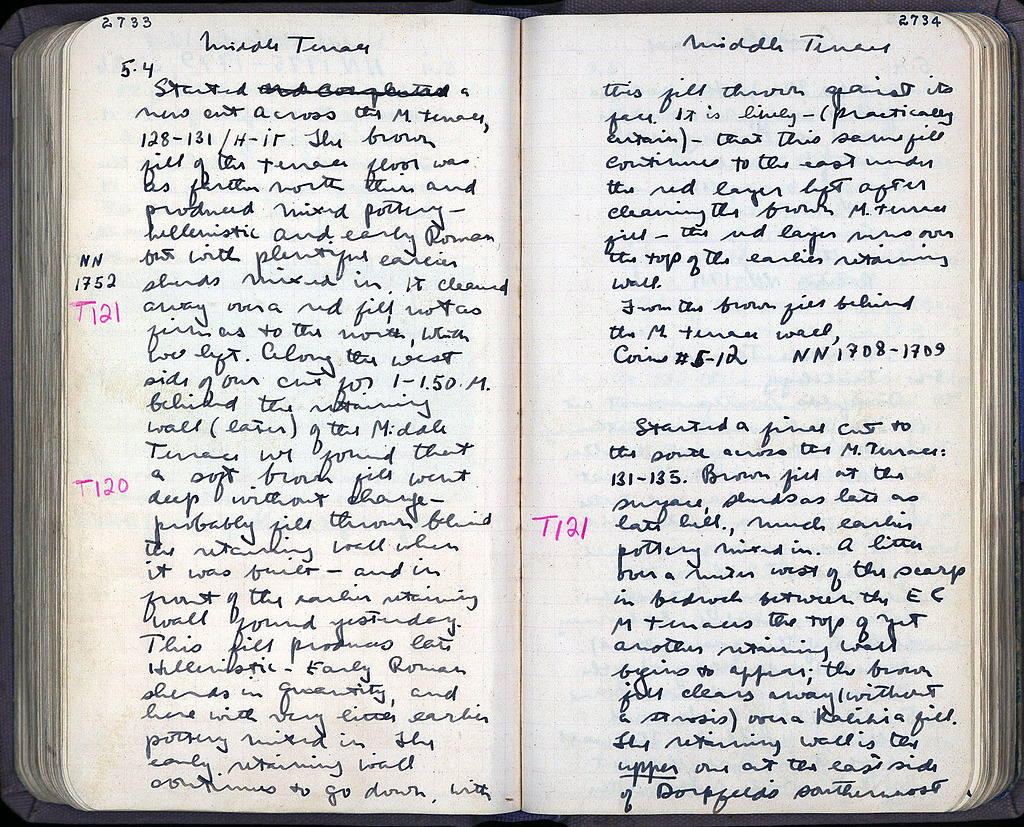 2733
Middle Terrace
5.4
Started and completed a
new cut across the M. terrace,
128-131/H-IT. The brown
fill of the terrace floor was
as further north thin and
produced mixed pottery -
hellenistic and early Roman,
but with plentiful earlier
NN
1752
sherds mixed in. It cleaned
T121
away over a red fill not as
firm as to the north, which
we left. Along the west
side of our cut for 1-1.50 M.
behind the retaining
wall (later) of the Middle
Terrace we found that
a soft brown fill went
T120
deep without change -
probably fill thrown behind
the retaining wall when
it was built - and in
front of the earlier retaining
wall found yesterday.
This fill produces late
Hellenistic - Early Roman
sherds in quantity, and
here with very little earlier
pottery mixed in. The
early retaining wall
continues to go down, with
2734
Middle Terrace
this fill thrown against its
face. It is likely - (practically
certain) - that this same fill
continues to the east under
the red layer left after
cleaning the brown M. terrace
fill - the red layer runs over
the top of the earlier retaining
wall.
From the brown fill behind
the M. terrace wall,
Coins #5-12 NN 1708-1709
Started a final cut to
the south across the M. Terrace:
131-135. Brown fill at the
surface, sherds as late as
T121
late hell., much earlier
pottery mixed in. A little
over a meter west of the scarp
in bedrock between the E &
M terraces the top of yet
another retaining wall
begins to appear; the brown
fill clears away (without
a strosis) over a Kalibia fill.
The retaining wall is the
upper one at the east side
of Dörpfeld's southernmost